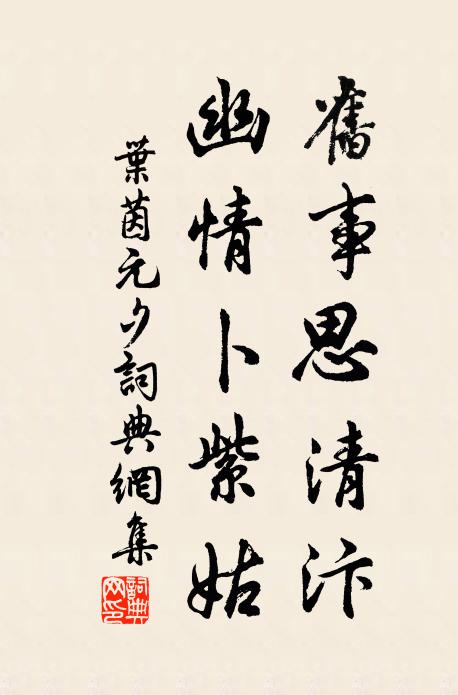 舊事思清汴
幽情卜紫姑
葉茵元夕詞典網集
詞典网印